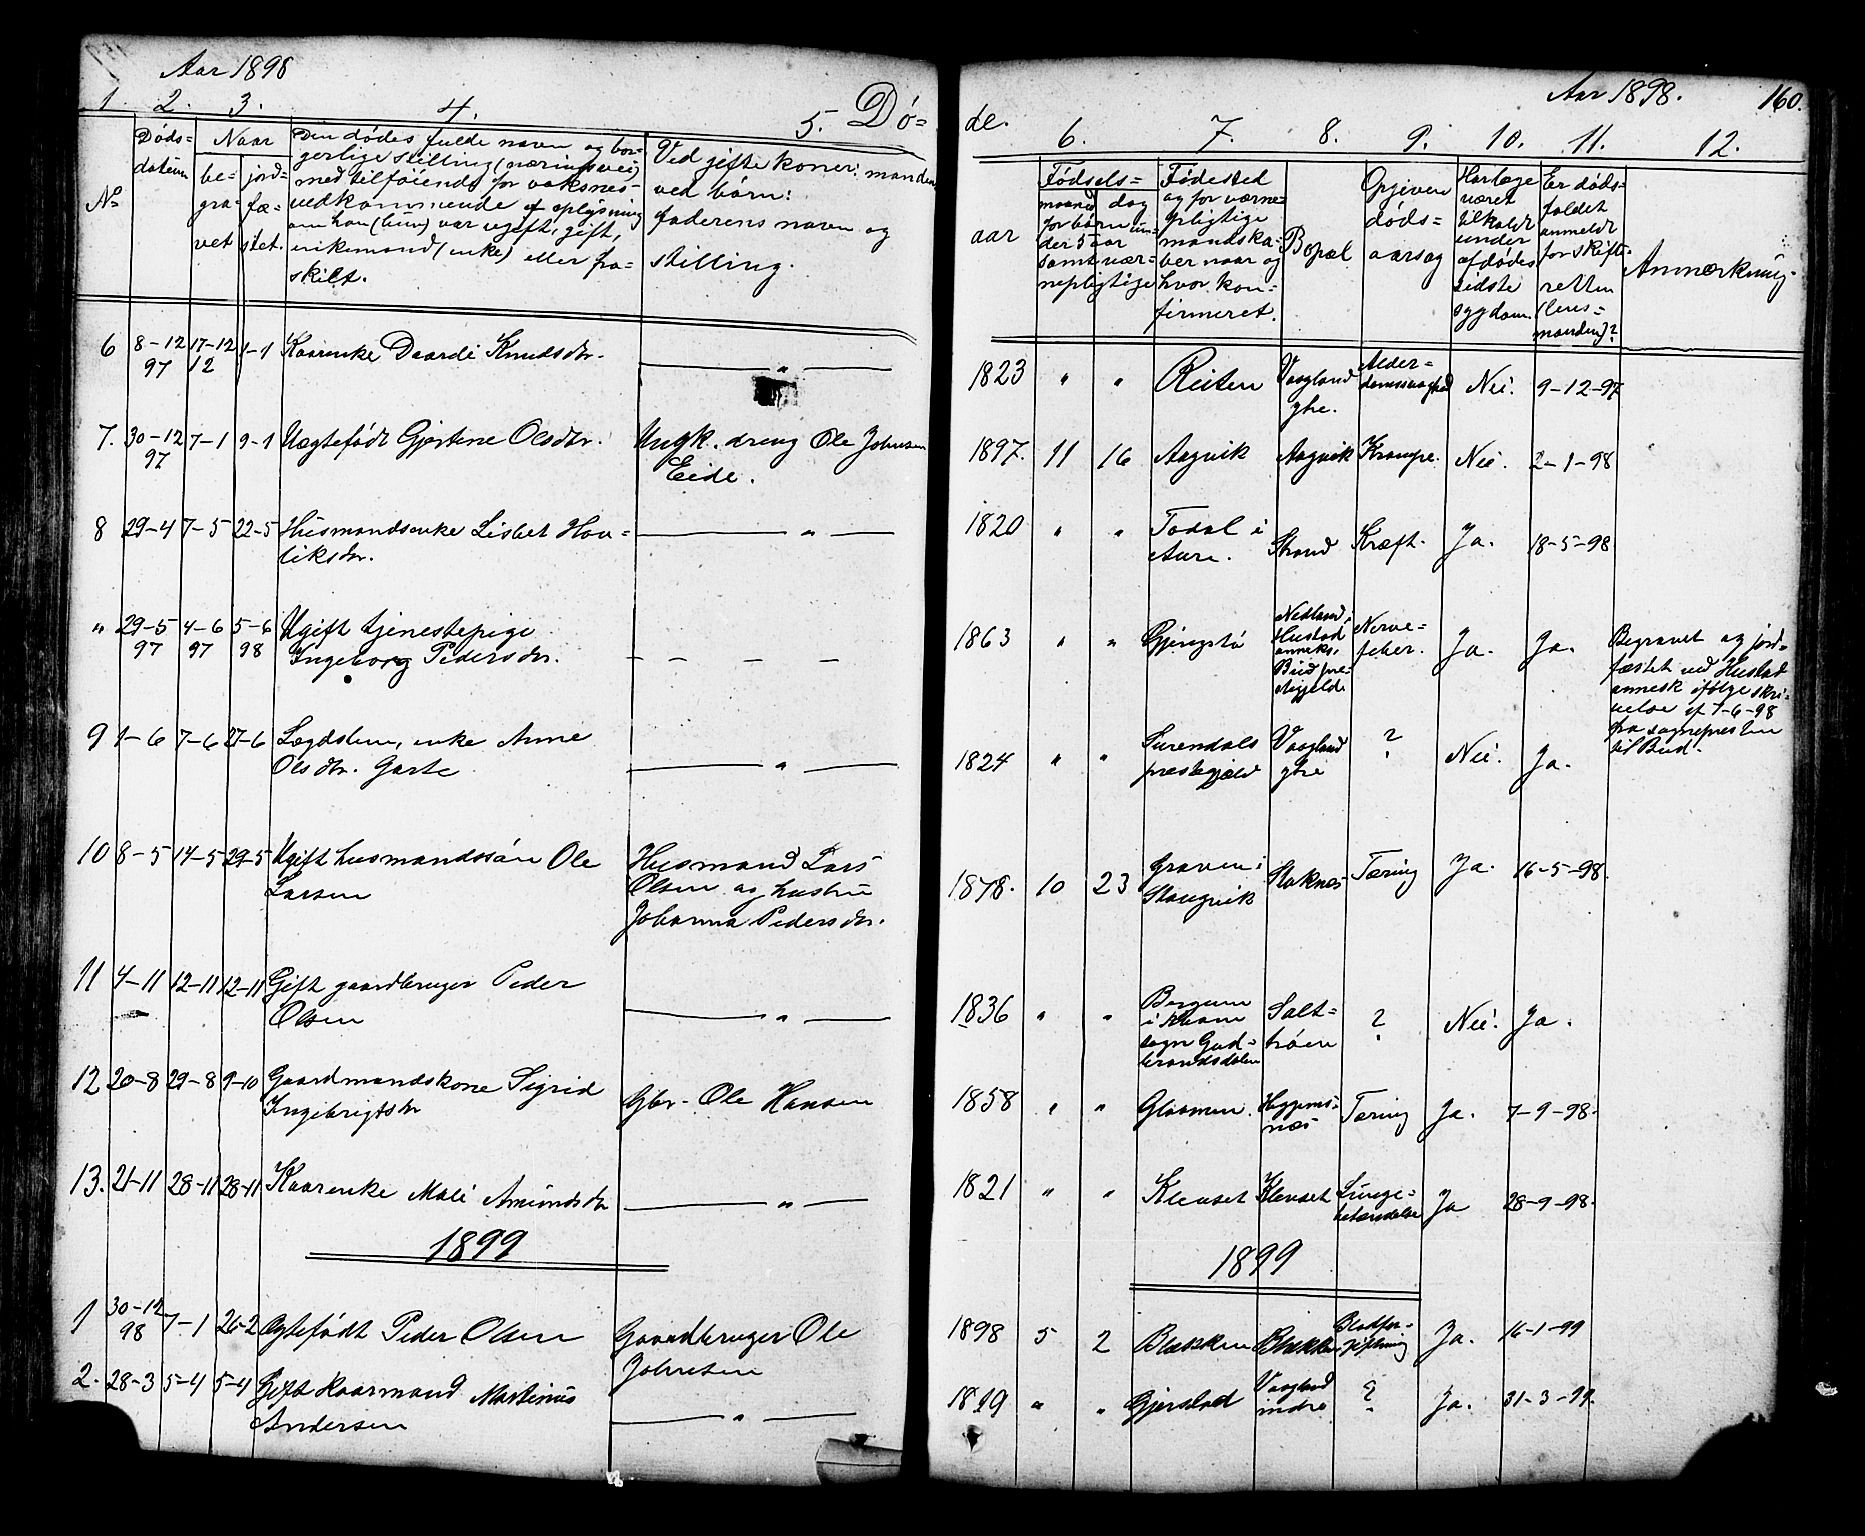 Aar 1898
1. 2. 3. 4. 5. Dø=
No
Døds-
datum
Naar
be-
gra-
vet
jord=
fæ-
stet.
Den dødes fulde navn og bor-
gerlige stilling (næringsvei)
med tilføiende for voksnes-
vedkommende af oplysning
om han (hun) var ugift, gift,
enkemand (enke) eller fra-
skilt.
Ved gifte koner: manden
ved børn:
faderens navn og
stilling.
6 8-12 17-12 1-1 Kaarenke Daardi Knudsdtr.
97 12
7. 30-12 7-1 9-1 Uægtefødt Gjertine Olsdtr. Ungk. dreng Ole Johnsen
97 Eide.
8 29-4 7-5 22-5 Husmandsenke Lisbet Hov=
liksdtr.
" 29-5 4-6 5-6 Ugift tjenestepige
97 97 98 Ingeborg Pedersdtr.
9 1-6 7-6 27-6 Lægdslem, enke Anne
Olsdtr. Garte
10 8-5 14-5 29-5 Ugift husmandssøn Ole Husmand Lars
Larsen Olsen og hustru
Johanna Pedersdtr.
11 4-11 12-11 12-11 Gift gaardbruger Peder
Olsen
12 20-8 29-8 9-10 Gaardmandskone Sigrid
Ingebrigtsdtr Gbr. Ole Hansen
13. 21-11 28-11 28-11 Kaarenke Mali Amundsdtr
1899
1 30-12 7-1 26-2 Ægtefødt Peder Olsen Gaardbruger Ole
98 Johnsen
2. 28-3 5-4 5-4 Gift kaarmand Martinus
Andersen
Aar 1898. 160.
de. 6. 7. 8. 9. 10. 11. 12.
Fødsels=
aar
maaned dag
for børn un-
der 5 aar
samt vær-
nepligtige
Fødested
og for værne-
pligtige
mandska-
ber naar og
hvor kon-
firmeret.
Bopæl
Opgiven
døds=
aarsag
Har læge
været
tilkaldt
under
afdødes
sidste
sygdom.
Er døds-
faldet
anmeldt
for skifte-
retten
(lens=
manden)?
Anmærkning.
1823 " " Reiten Vaagland Alder=
yhe. domssvaghed Nei. 9-12-97
1897. 11 16 Aagvik Aagvik Krampe. Nei. 2-1-98
1820 " " Todal i
Aure. Strand Kræft. Ja. 18-5-98
1863 " " Gjengstø Nedland, Nerve=
Hustad feber. Ja. Ja.
anneks,
Bud præ-
stegjeld.
Begravet og jord=
fæstet ved Hustad
anneks ifølge skri-
velse af 7-6-98
fra sognepresten
til Bud.
1824 " " Surendals Vaagland ? Nei. Ja.
præstegjeld yhe
1878. 10 23 Graven i
Stangvik Stoknes Tæring Ja. 16-5-98.
1836 " " Bergum Salt=
i Kvam trøen ? Nei. Ja.
sogn Gud=
brandsdalen
1858 " " Glaamen. Heggems= Tæring Ja. 7-9-98.
næs
1821 " " Klevset Klevset Lunge=
betændelse Ja 28-9-98.
1899
1898 5 2 Blekken Blekken Blodfor-
giftning Ja. 16-1-99
1819 " " Gjerstad Vaagland ? Ja. 31-3-99.
indre